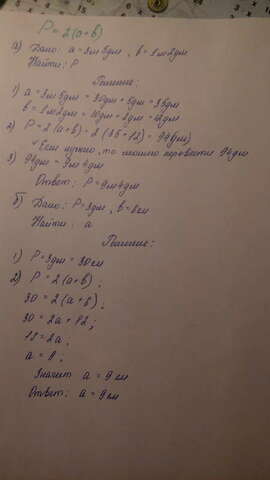 P = 2(a+b)
а) Дано: a = 3м 5дм, b = 1м 2дм
Найти: P
Решение:
1) a = 3м 5дм = 30дм + 5дм = 35дм
b = 1м 2дм = 10дм + 2дм = 12дм
2) P = 2(a+b) = 2(35+12) = 94(дм)
Если нужно, то можно перевести 94дм
3) 94дм = 9м 4дм
Ответ: P = 9м 4дм
б) Дано: P = 3дм, b = 6см
Найти: a
Решение:
1) P = 3дм = 30см
2) P = 2(a+b);
30 = 2(a+6);
30 = 2a + 12;
18 = 2a;
a = 9;
Значит a = 9 см
Ответ: a = 9 см